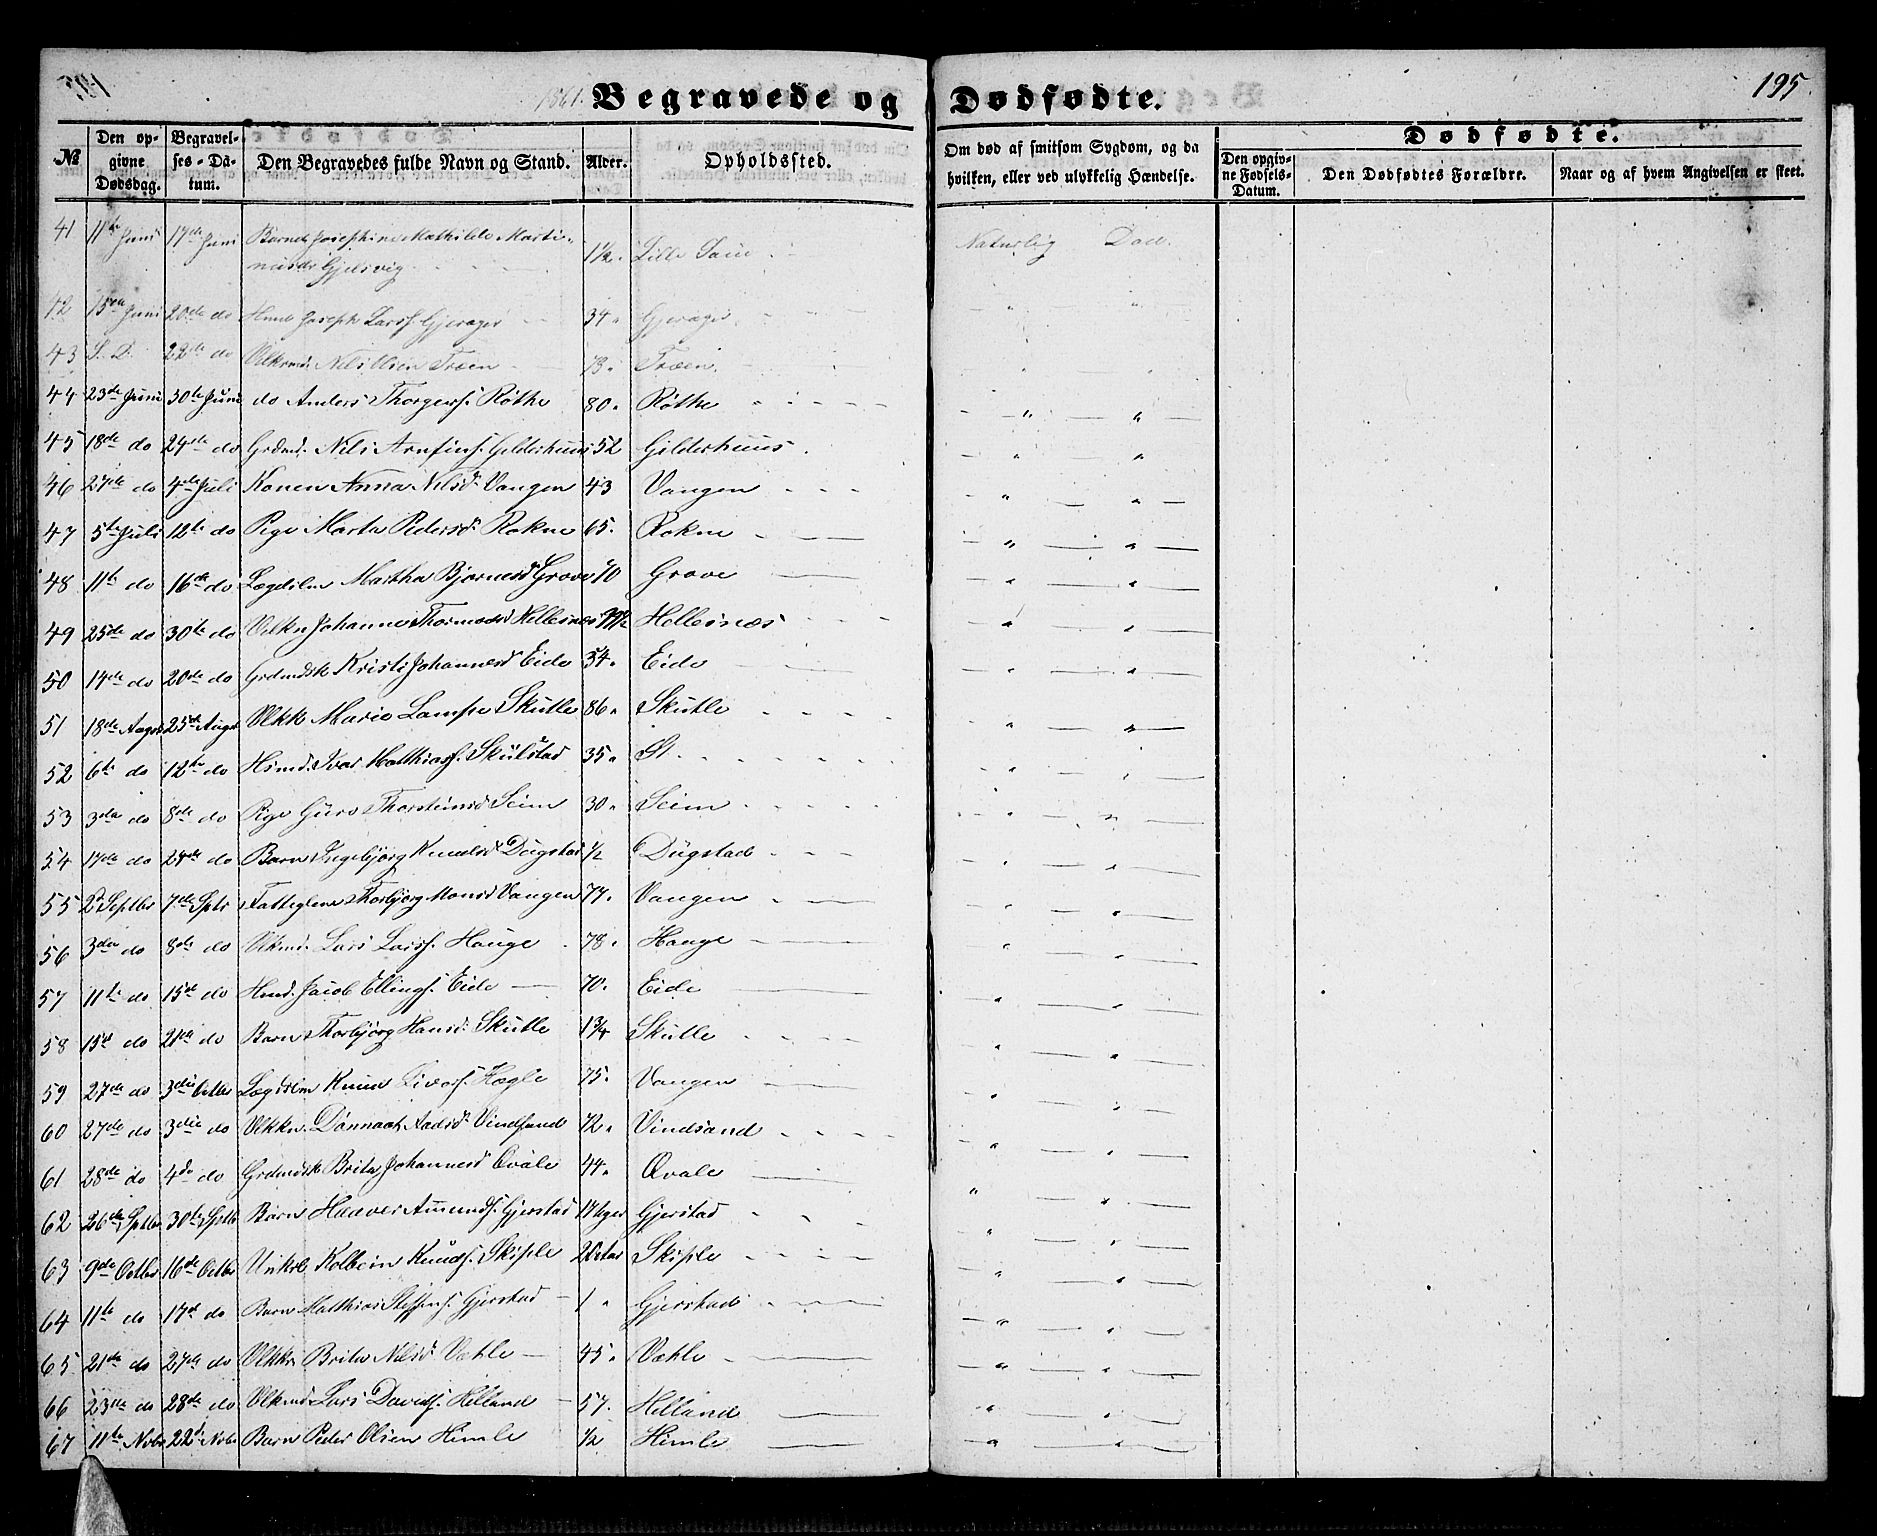 195.
1861. Begravede og Dødfødte.
№ Den opgivne Dødsdag. Begravelses-Datum. Den Begravedes fulde Navn og Stand. Alder. Opholdssted. Om død af smitsom Sygdom, og da hvilken, eller ved ulykkelig Hændelse. Dødfødte. Den opgivne Fødsels-Datum. Den Dødfødtes Forældre. Naar og af hvem Angivelsen er skeet.
41 11te Juni 17de Juni Barnet Josephine Mathilde Marti-
nusdr Gjelsvig 1½. Lille Naturlig Død.
42 15de Juni 20de do Hmd Joseph Larss. Gjerager 34. Gjerager " "
43 S. D. 22de do Vlkmd. Nils Olsen Træen 73. Træen. " "
44 23de Juni 30te Juni do Anders Thorgers. Røthe 80. Røthe " "
45 18de do 24de do Grdmd. Nils Arnfins. Gilderhuus 52 Gilderhuus " "
46 27de do 4de Juli Konen Anna Nilsd. Vangen 43 Vangen " "
47 5te Juli 12te do Pige Marta Pedersd. Rokne 65. Rokne " "
48 11te do 16de do Lægdslm Martha Bjørnesd Grove 70 Grove " "
49 25de do 30te do Vlkn Johanne Thormodsd Hellesnæs Hellesnæs " "
50 14de do 20de do Grdmdsk Kristi Johannesd Eide 34. Eide " "
51 18de Augst 25de Augst Vlkk Marie Lampe Skutle 86. Skutle " "
52 6te do 12te do Hsmd. Ivar Matthiass. Skulstad 35. St. " "
53 3die do 8de do Pige Guro Thorsteinsd Seim 30. Seim " "
54 17de do 24de do Barn Ingebjørg Knudsd Dugstad ½ Dugstad " "
55 2d Septbr 7de Sptr Fatteglem Thorbjørg Monsd Vangen 77. Vangen " "
56 3die do 8de do Vlkmd. Lars Larss. Hauge 78. Hauge " "
57 11te do 15de do Hmd. Jacob Ellings. Eide 70. Eide " "
58 15de do 21de do Barn Thorbjørg Hansd. Skutle 1¾ Skutle " "
59 27de do 3die Octbr Lægdslm Knud Sivers. Hægle 75. Vangen " "
60 27de do 3die do Vlkkn. Dønnaat Aadsd. Vindsand 72. Vindsand " "
61 28de do 4de do Grdmdsk Brita Johannesd Qvale 44. Qvale " "
62 26de Sptbr 30te Sptb Barn Haaver Amunds. Gjerstad 17 Uger Gjerstad " "
63 9de Octbr 16de Octbr Unkrl Kolbein Knuds. Skiple Skiple " "
64 11te do 17de do Barn Matthias Steffens. Gjerstad 1 " Gjerstad " "
65 21de do 27de do Vlkk Brita Nilsd Vætle 45. Vætle " "
66 23de do 28de do Vlkmd Lars Davids. Helland 57. Helland " "
67 11te Nvbr 22d Nvbr Barn Peder Olsen Himle ½ Himle " "